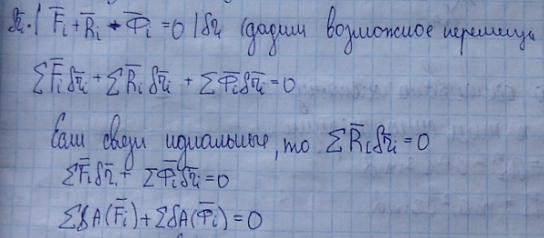 Д-во: | F̅i + R̅i + Φ̅i = 0 | δr̅i (дадим возможное перемещ
∑F̅iδr̅i + ∑R̅iδr̅i + ∑Φ̅iδr̅i = 0
Если связи идеальные, то ∑R̅iδr̅i = 0
∑F̅iδr̅i + ∑Φ̅iδr̅i = 0
∑δA(F̅i) + ∑δA(Φ̅i) = 0